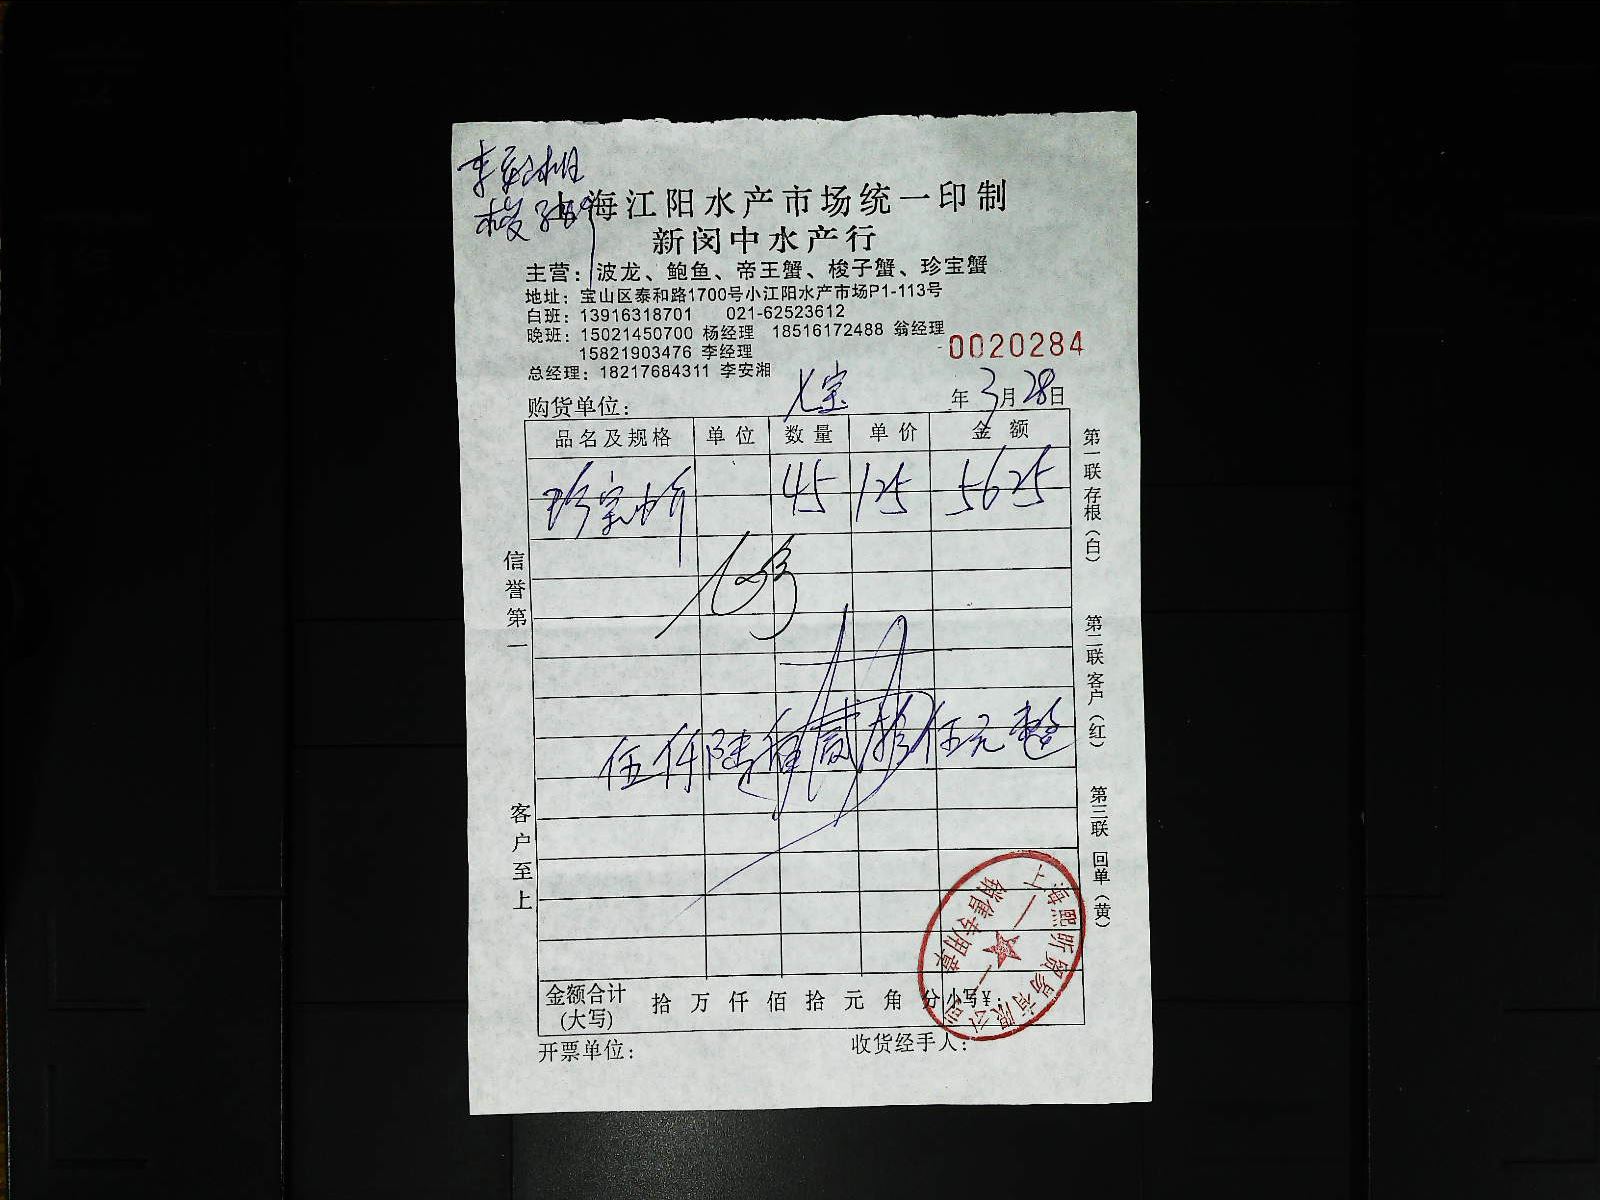 上海江阳水产市场统一印制
新闵中水产行
主营：波龙、鲍鱼、帝王蟹、梭子蟹、珍宝蟹
地址：宝山区泰和路1700号小江阳水产市场P1-113号
白班：13916318701 021-62523612
晚班：15021450700 杨经理 18516172488 翁经理
15821903476 李经理
总经理：18217684311 李安湘
0020284
购货单位： 七宝 年3月28日
品名及规格 单位 数量 单价 金额
珍宝 45 125 5625
伍仟陆佰贰拾伍元整
金额合计(大写) 拾 万 仟 佰 拾 元 角 分 小写¥：
开票单位： 收货经手人：
信誉第一
客户至上
第一联 存根（白）
第二联 客户（红）
第三联 回单（黄）
上海熙昕贸易有限公司
销售专用章